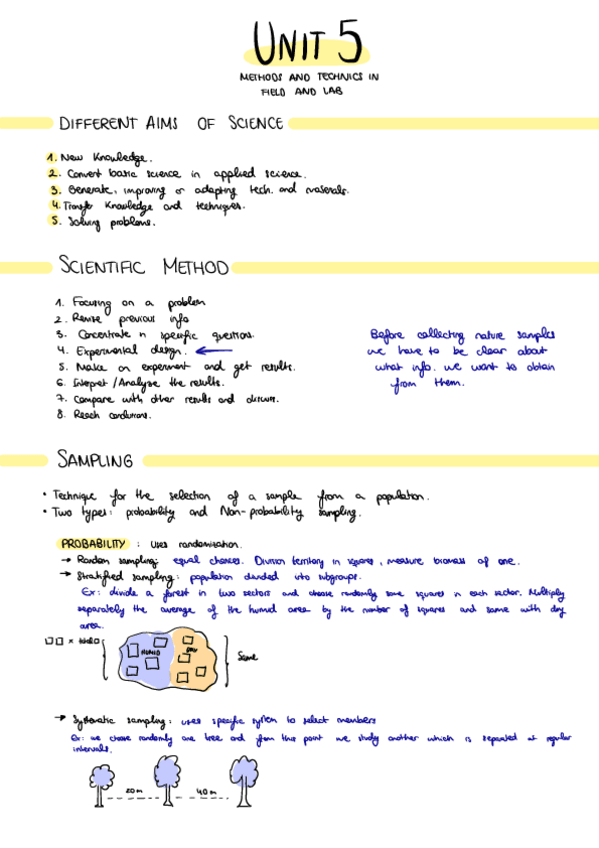 UNIT 5
METHODS AND TECHNICS IN
FIELD AND LAB
DIFFERENT AIMS OF SCIENCE
1. New Knowledge.
2. Convert basic science in applied science.
3. Generate, improving or adapting tech. and materials.
4. Transfer Knowledge and techniques.
5. Solving problems.
SCIENTIFIC METHOD
1. Focusing on a problem
2. Revise previous info
3. Concentrate in specific questions.
4. Experimental design.
5. Make an experiment and get results.
6. Interpret / Analyze the results.
7. Compare with other results and discuss.
8. Reach conclusions.
Before collecting nature samples
we have to be clear about
what info. we want to obtain
from them.
SAMPLING
• Technique for the selection of a sample from a population.
• Two types: probability and Non-probability sampling.
PROBABILITY : Uses randomisation.
→ Random sampling: equal chances. Division territory in squares, measure biomass of one.
→ Stratified sampling: population divided into subgroups.
Ex: divide a forest in two sectors and choose randomly some squares in each sector. Multiply
separately the average of the humid area by the number of squares and same with dry
area.
HUMID
DRY
Same
→ Systematic sampling: uses specific system to select members
Ex: we choose randomly one tree and from this point we study another which is separated at regular
intervals.
20m
40m